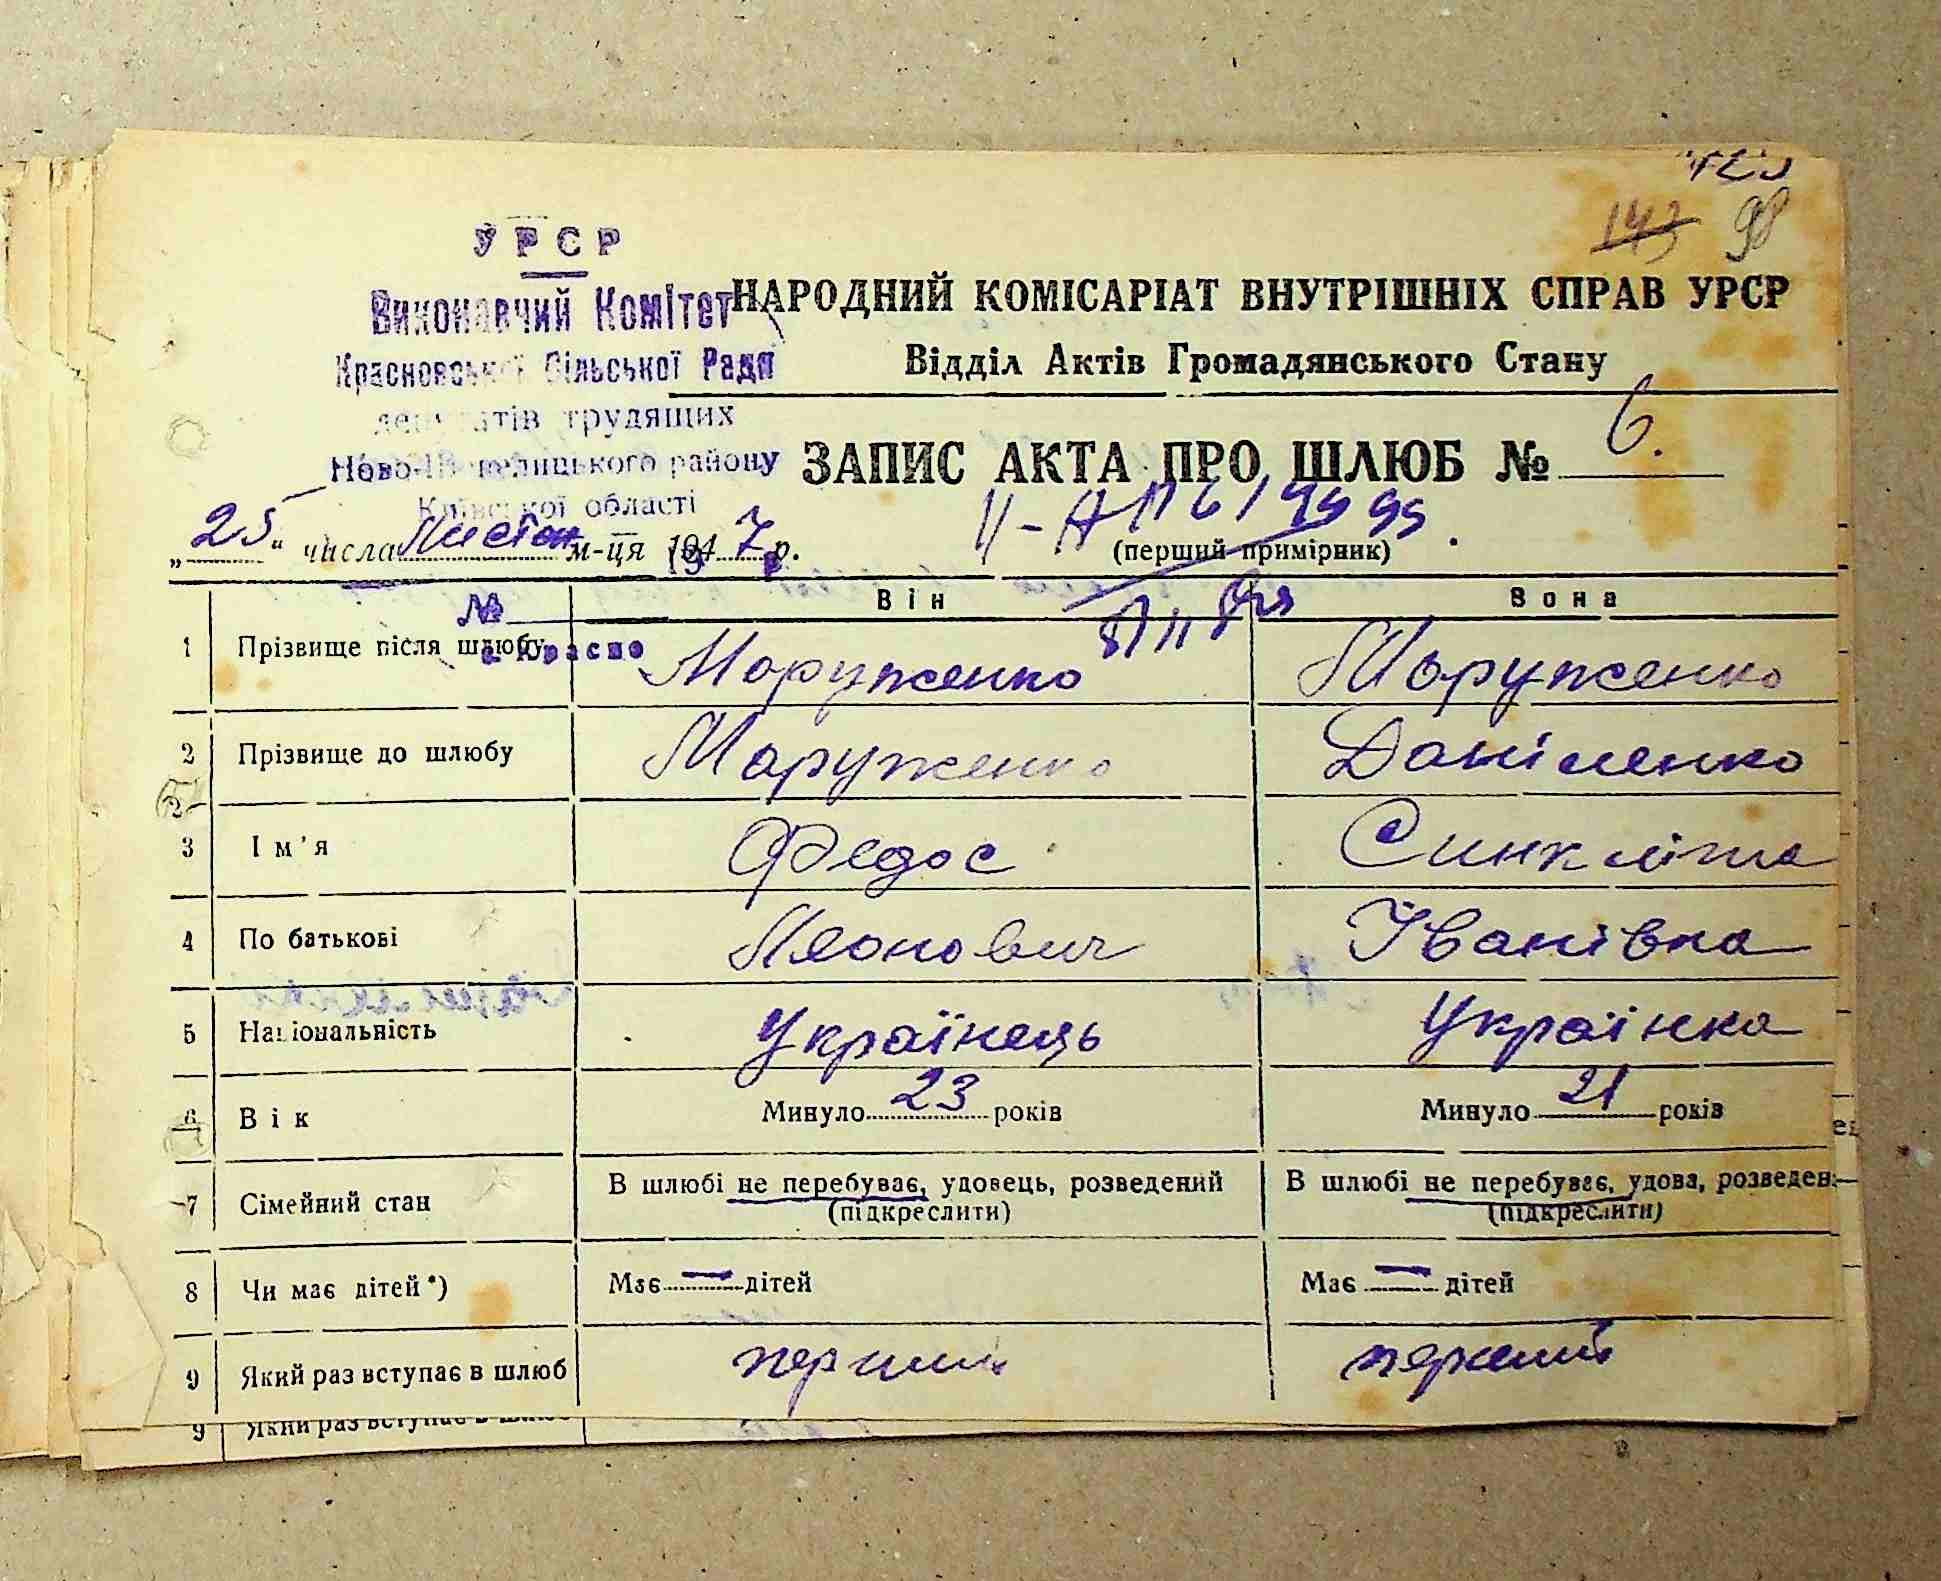 143 98
УРСР
Виконавчий Комітет
Красновської Сільської Ради
депутатів трудящих
Ново-Шепелицького району
Київської області
НАРОДНИЙ КОМІСАРІАТ ВНУТРІШНІХ СПРАВ УРСР
Відділ Актів Громадянського Стану
ЗАПИС АКТА ПРО ШЛЮБ № 6.
II-АП 6
„25" числа Листоп м-ця 1947 р.
(перший примірник)
№
с. Красно
Він Вона
1 Прізвище після шлюбу Маруженко Маруженко
2 Прізвище до шлюбу Маруженко Даніленко
3 Ім'я Федос Синкліта
4 По батькові Леонович Іванівна
5 Національність Українець Українка
6 Вік Минуло 23 років Минуло 21 років
7 Сімейний стан В шлюбі не перебуває, удовець, розведений В шлюбі не перебуває, удова, розведен
(підкреслити) (підкреслити)
8 Чи має дітей*) Має — дітей Має — дітей
9 Який раз вступає в шлюб перший перший
9 Який раз вступає в шлюб